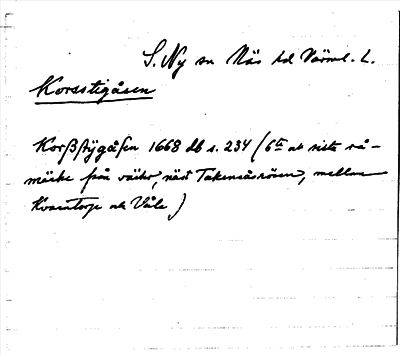 S. Ny sn Näs hd Värml. L.
Korsstigåsen
Korßstÿgåsen 1668 db s. 234 (6te ok sista rå-
märke från väster, näst Takeneåsrösen, mellan
Kvarntorp ok Våle)